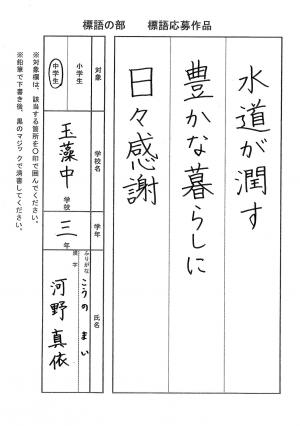 標語の部　標語応募作品
水道が潤す
豊かな暮らしに
日々感謝
対象
小学生
中学生
学校名
玉藻中 学校
学年
三 年
氏名
ふりがな こうの まい
漢字 河野 真依
※対象欄は、該当する箇所を〇印で囲んでください。
※鉛筆で下書き後、黒のマジックで清書してください。